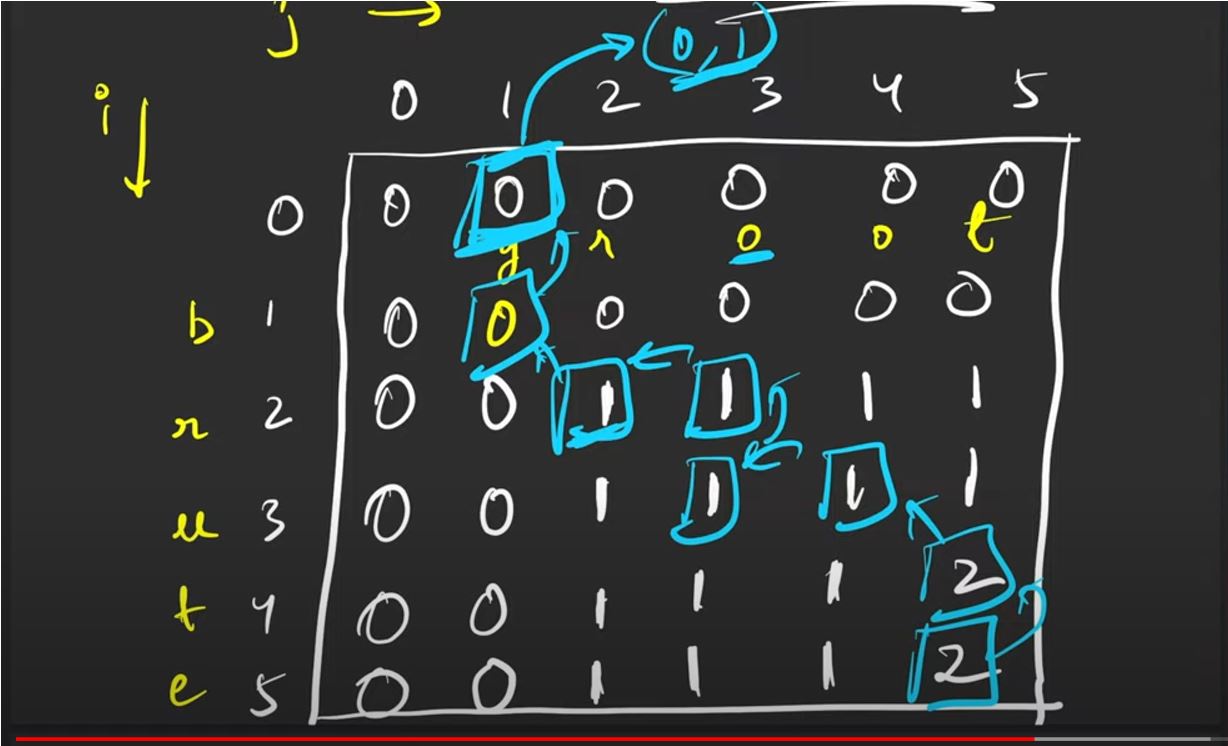 j
(0, 1)
i
0 1 2 3 4 5
0 0 0 0 0 0 0
g r o o t
b 1 0 0 0 0 0 0
r 2 0 0 1 1 1 1
u 3 0 0 1 1 1 1
t 4 0 0 1 1 1 2
e 5 0 0 1 1 1 2